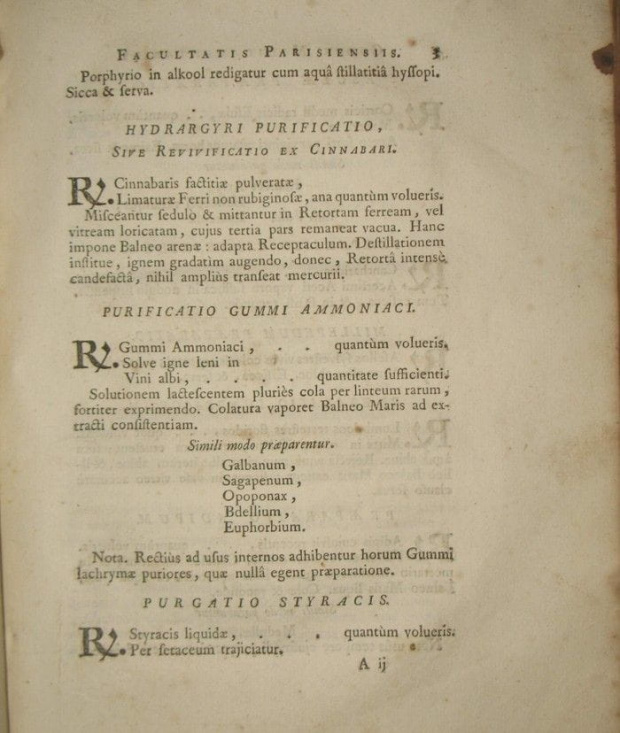 FACULTATIS PARISIENSIIS. 3
Porphyrio in alkool redigatur cum aquâ ſtillatitiâ hyſſopi.
Sicca & ſerva.
HYDRARGYRI PURIFICATIO,
SIVE REVIVIFICATIO EX CINNABARI.
℞. Cinnabaris factitiæ pulveratæ,
Limaturæ Ferri non rubiginoſæ, ana quantùm volueris.
Miſceantur ſedulo & mittantur in Retortam ferream, vel
vitream loricatam, cujus tertia pars remaneat vacua. Hanc
impone Balneo arenæ: adapta Receptaculum. Deſtillationem
inſtitue, ignem gradatìm augendo, donec, Retortâ intensè
candefactâ, nihil ampliùs tranſeat mercurii.
PURIFICATIO GUMMI AMMONIACI.
℞. Gummi Ammoniaci, . . quantùm volueris.
Solve igne leni in
Vini albi, . . . . quantitate ſufficienti.
Solutionem lacteſcentem pluriès cola per linteum rarum,
fortiter exprimendo. Colatura vaporet Balneo Maris ad ex-
tracti conſiſtentiam.
Simili modo præparentur.
Galbanum,
Sagapenum,
Opoponax,
Bdellium,
Euphorbium.
Nota. Rectiùs ad uſus internos adhibentur horum Gummi
lachrymæ puriores, quæ nullâ egent præparatione.
PURGATIO STYRACIS.
℞. Styracis liquidæ, . . . quantùm volueris.
Per ſetaceum trajiciatur.
A ij